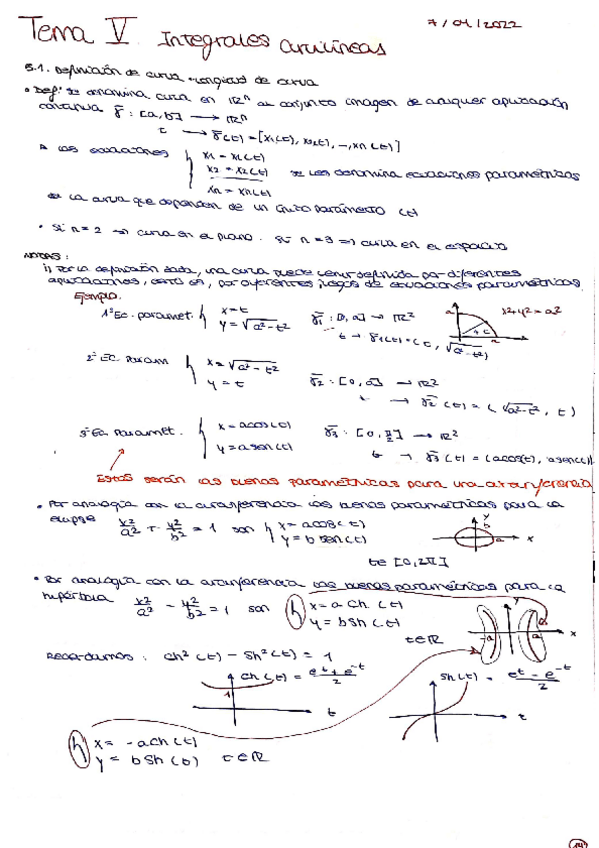 7/04/2022
Tema V. Integrales curvilíneas
5.1. Definición de curva. Longitud de curva
• Def: se denomina curva en ℝⁿ al conjunto imagen de cualquier aplicación
continua γ̄ : [a, b] → ℝⁿ
t → γ̄(t) = [x₁(t), x₂(t), ..., xn(t)]
Las ecuaciones { x₁ = x₁(t)
x₂ = x₂(t) se les denomina ecuaciones paramétricas
xn = xn(t)
de la curva que dependen de un único parámetro (t)
• Si n=2 ⇒ curva en el plano. Si n=3 ⇒ curva en el espacio
NOTAS:
i) Por la definición dada, una curva puede venir definida por diferentes
aplicaciones, esto es, por diferentes juegos de ecuaciones paramétricas.
Ejemplo.
1ª Ec. paramet. { x = t
y = √(a²-t²)
γ̄₁ : [0, a] → ℝ²
t → γ̄₁(t) = (t, √(a²-t²))
a
t
a
x²+y² = a²
2ª Ec. Param { x = √(a²-t²)
y = t
γ̄₂ : [0, a] → ℝ²
t → γ̄₂(t) = (√(a²-t²), t)
3ª Ec. Paramet. { x = a cos(t)
y = a sen(t)
γ̄₃ : [0, π/2] → ℝ²
t → γ̄₃(t) = (a cos(t), a sen(t))
Estas serán las buenas paramétricas para una circunferencia
• Por analogía con la circunferencia las buenas paramétricas para la
elipse x²/a² + y²/b² = 1 son { x = a cos(t)
y = b sen(t)
t ∈ [0, 2π]
y
b
a
x
• Por analogía con la circunferencia las buenas paramétricas para la
hipérbola x²/a² - y²/b² = 1 son { x = a Ch(t)
y = b Sh(t)
t ∈ ℝ
y
-a
a
x
Recordamos: Ch²(t) - Sh²(t) = 1
Ch(t) = (e^t + e^-t)/2
1
t
Sh(t) = (e^t - e^-t)/2
t
{ x = -a Ch(t)
y = b Sh(t) t ∈ ℝ